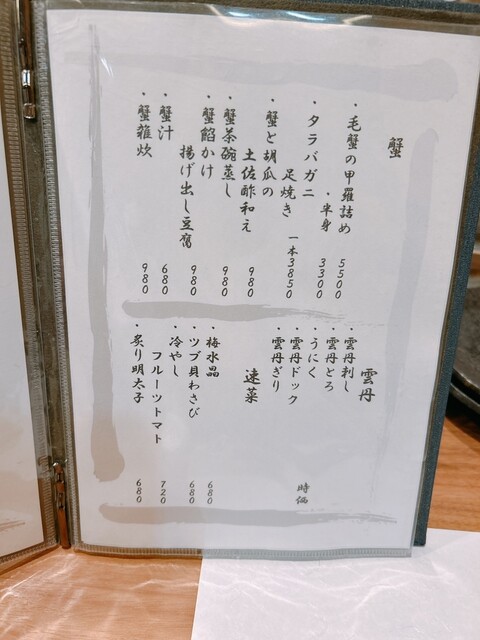 蟹
・毛蟹の甲羅詰め 5500
・半身 3300
・タラバガニ
足焼き 一本3850
・蟹と胡瓜の
土佐酢和え 980
・蟹茶碗蒸し 980
・蟹餡かけ
揚げ出し豆腐 980
・蟹汁 680
・蟹雑炊 980
雲丹
・雲丹刺し
・雲丹とろ
・うにく
・雲丹ドック
・雲丹ぎり
時価
速菜
・梅水晶 680
・ツブ貝わさび 680
・冷やし
フルーツトマト 720
・炙り明太子 680